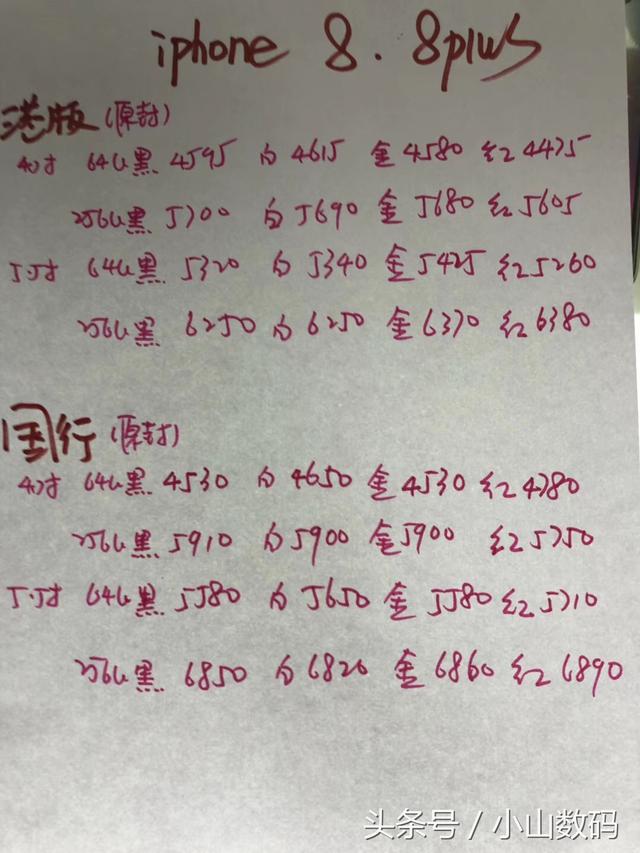 iphone 8. 8plus
港版(原封)
4.7寸 64G黑 4595 白 4615 金 4580 红 4475
256G黑 5700 白 5690 金 5680 红 5605
5.5寸 64G黑 5320 白 5340 金 5425 红 5260
256G黑 6250 白 6250 金 6370 红 6380
国行(原封)
4.7寸 64G黑 4530 白 4650 金 4530 红 4780
256G黑 5910 白 5900 金 5900 红 5750
5.5寸 64G黑 5580 白 5650 金 5580 红 5710
256G黑 6850 白 6820 金 6860 红 6890
头条号 / 小山数码